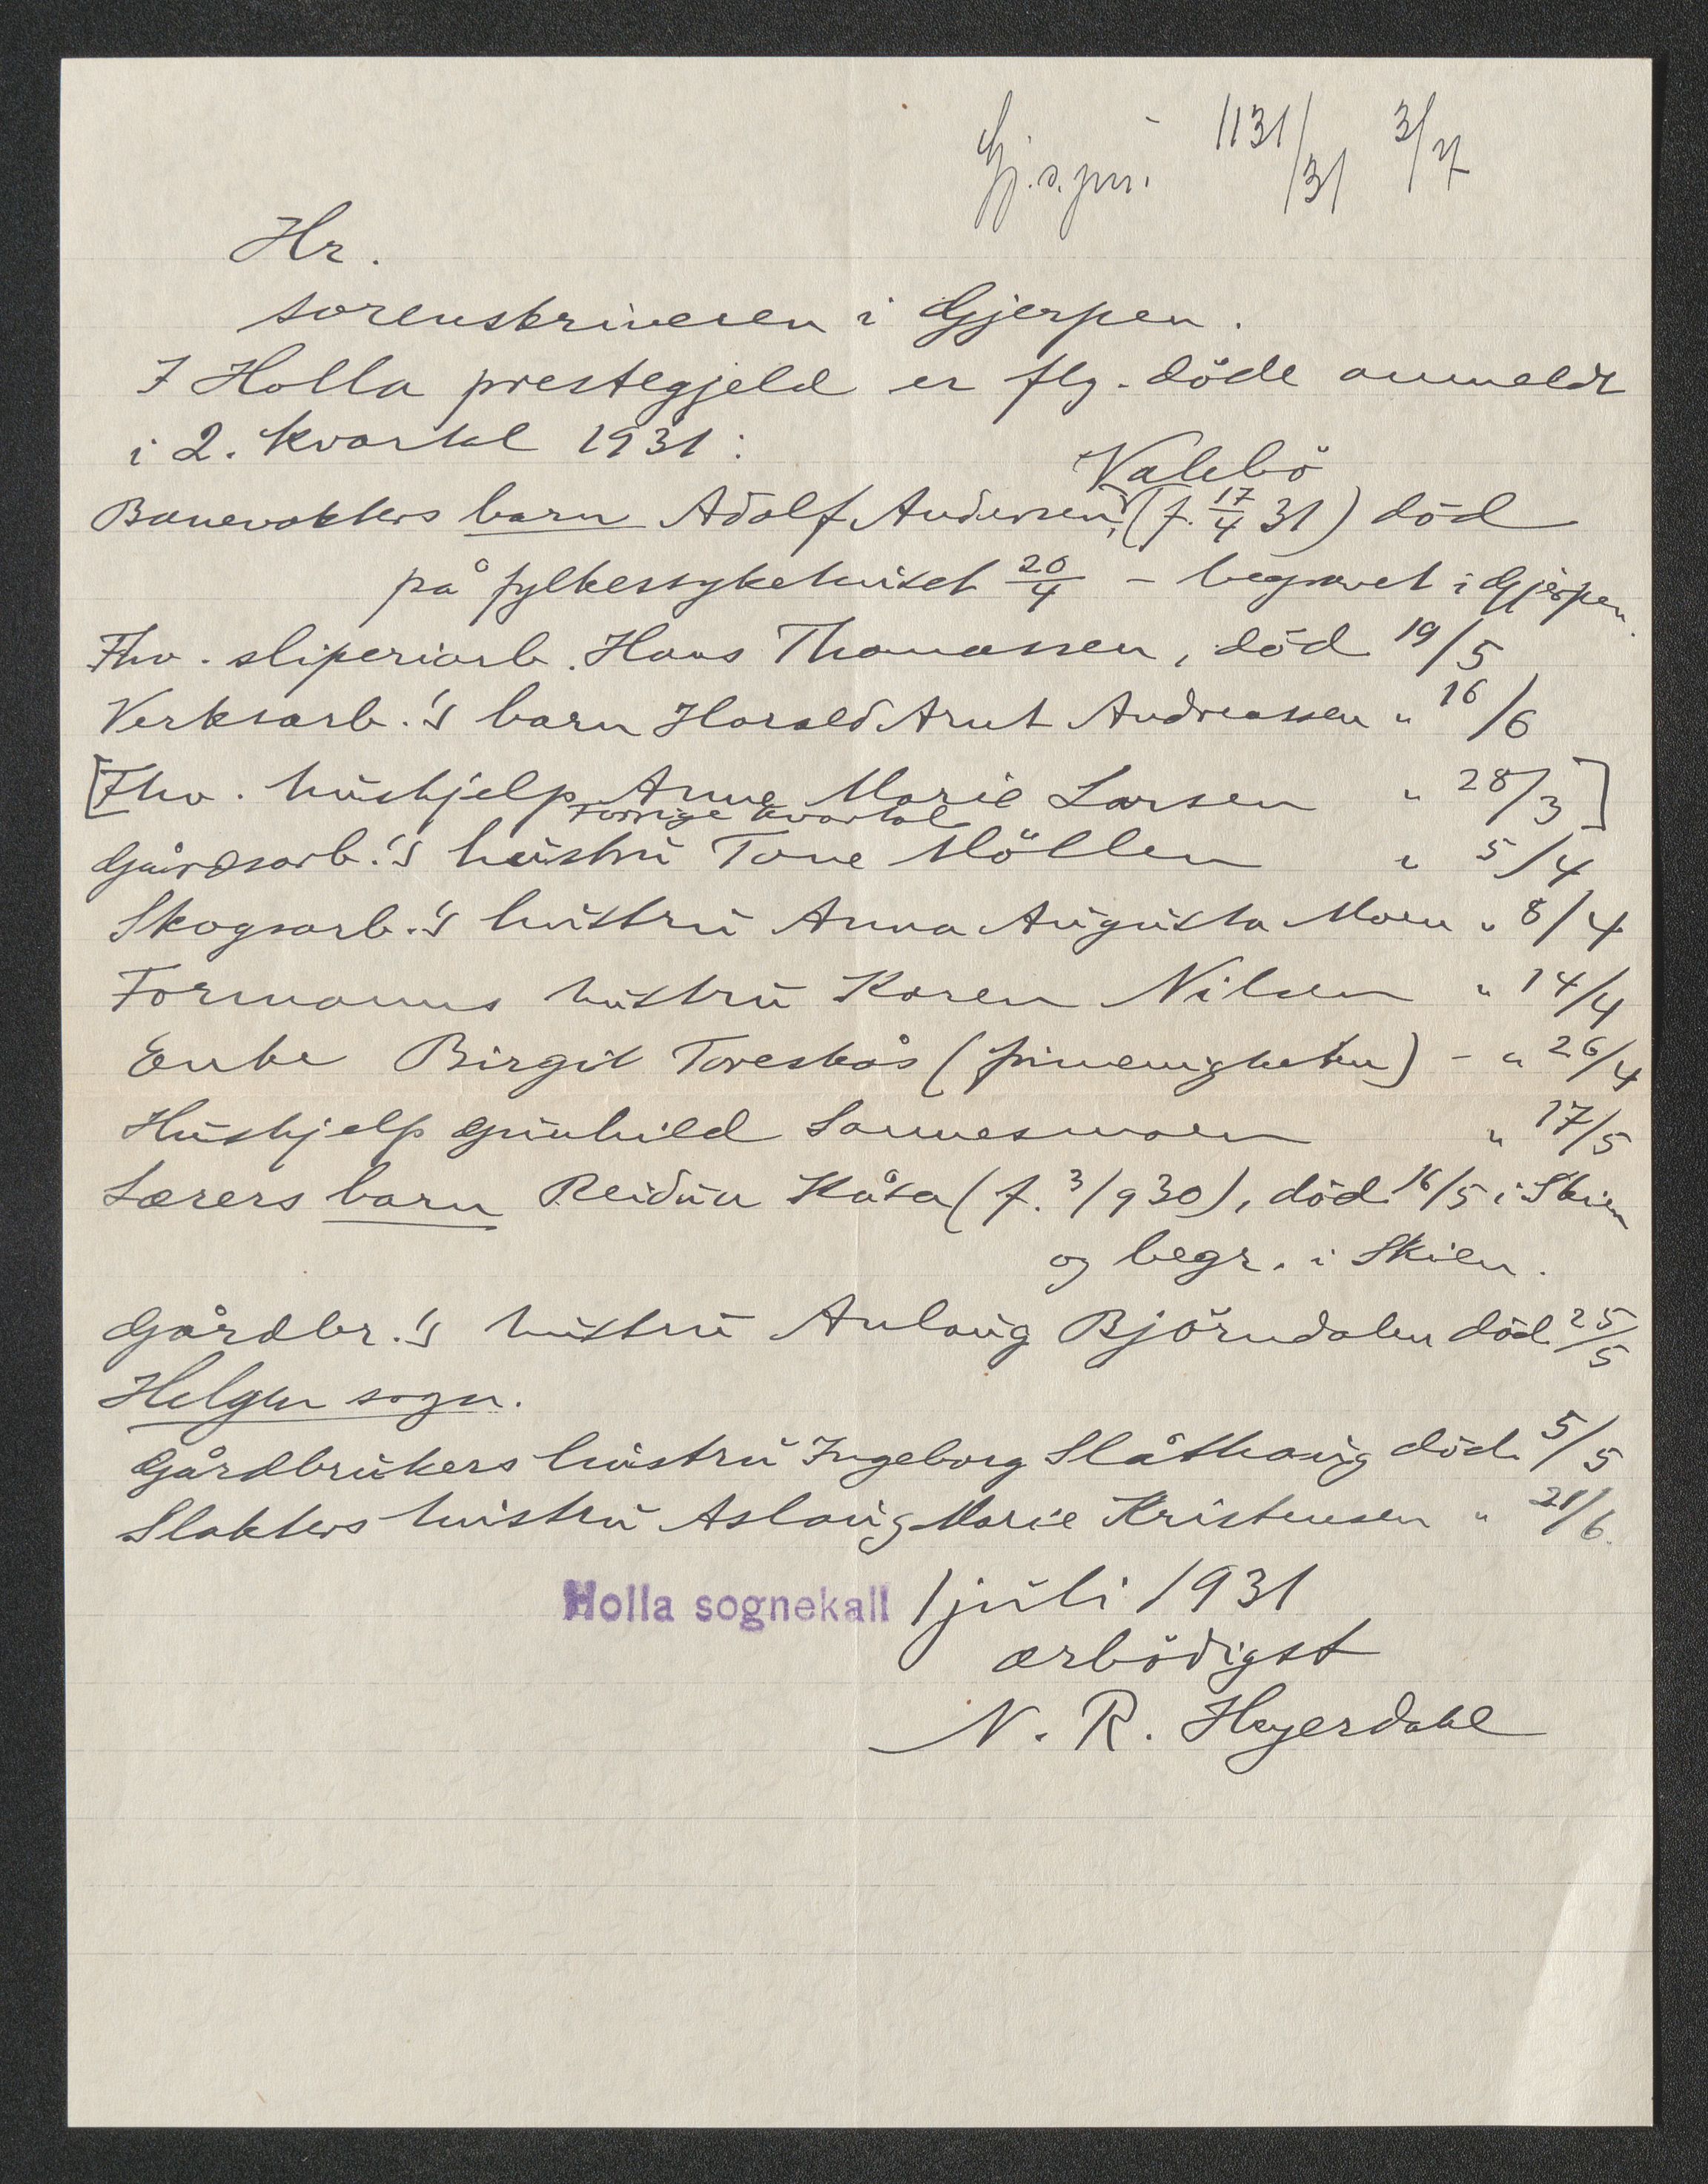 Gj.s.jnr. 1131/31 3/7
Hr.
sorenskriveren i Gjerpen.
I Holla prestegjeld er flg. döde anmeldt
i 2. kvartal 1931:
Valebö
Banevokters barn Adolf Andersen, (f. 17/4 31) död
på fylkessykehuset 20/4 - begravet i Gjerpen.
Fhv. sliperiarb. Hans Thomassen, död 19/5
Verksarb.'s barn Harald Arnt Andreassen " 16/6
[Fhv. hushjelp Anne Marie Larsen " 28/3]
forrige kvartal
Gårdsarb.'s hustru Tone Möllen " 5/4
Skogsarb.'s hustru Anna Augusta Moen " 8/4
Formanns hustru Karen Nilsen " 14/4
Enke Birgit Toreskås ( ) - " 26/4
Hushjelp Gunhild Sannesmoen " 17/5
Lærers barn Reidun Kåsa (f. 3/9 30), död 16/5 i Skien
og begr. i Skien.
Gårdbr.'s hustru Anlaug Björndalen död 25/5
Helgen sogn.
Gårdbrukers hustru Ingeborg Slåthaug död 5/5
Slakters hustru Aslaug Marie Kristensen " 21/6.
Holla sognekall 1 juli 1931
ærbödigst
N. R. Heyerdahl